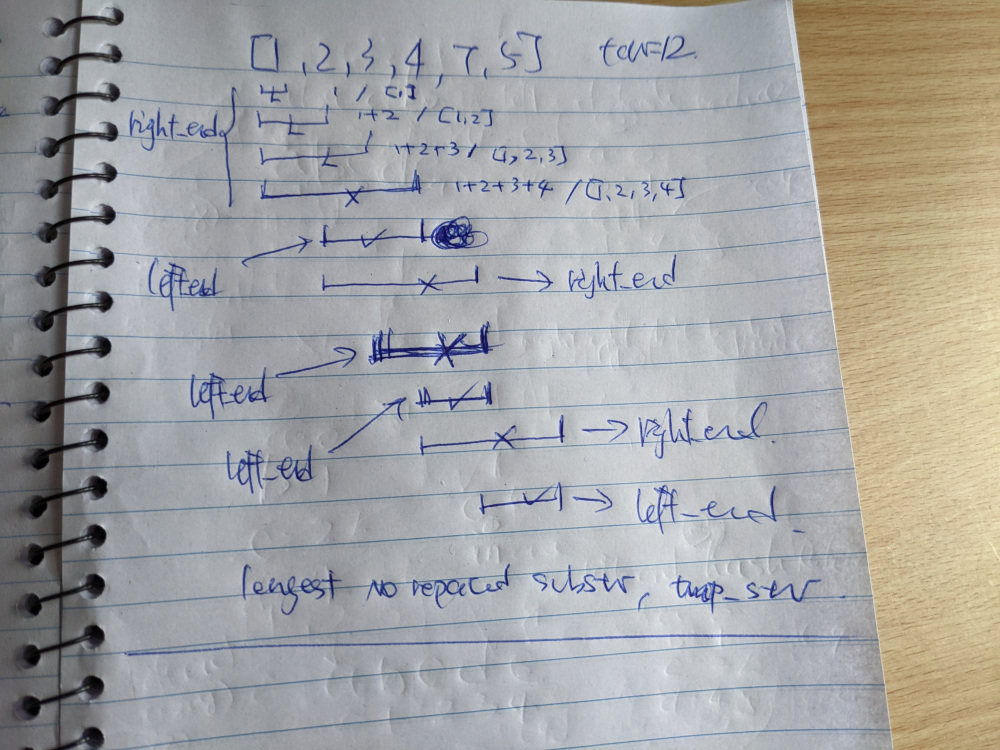 [1, 2, 3, 4, 7, 5] tar=12
1 / [1]
right_end
1+2 / [1,2]
1+2+3 / [1,2,3]
1+2+3+4 / [1,2,3,4]
left_end
→ right_end
left_end
left_end
→ right_end.
→ left_end
longest no repeated substr, tmp_str.